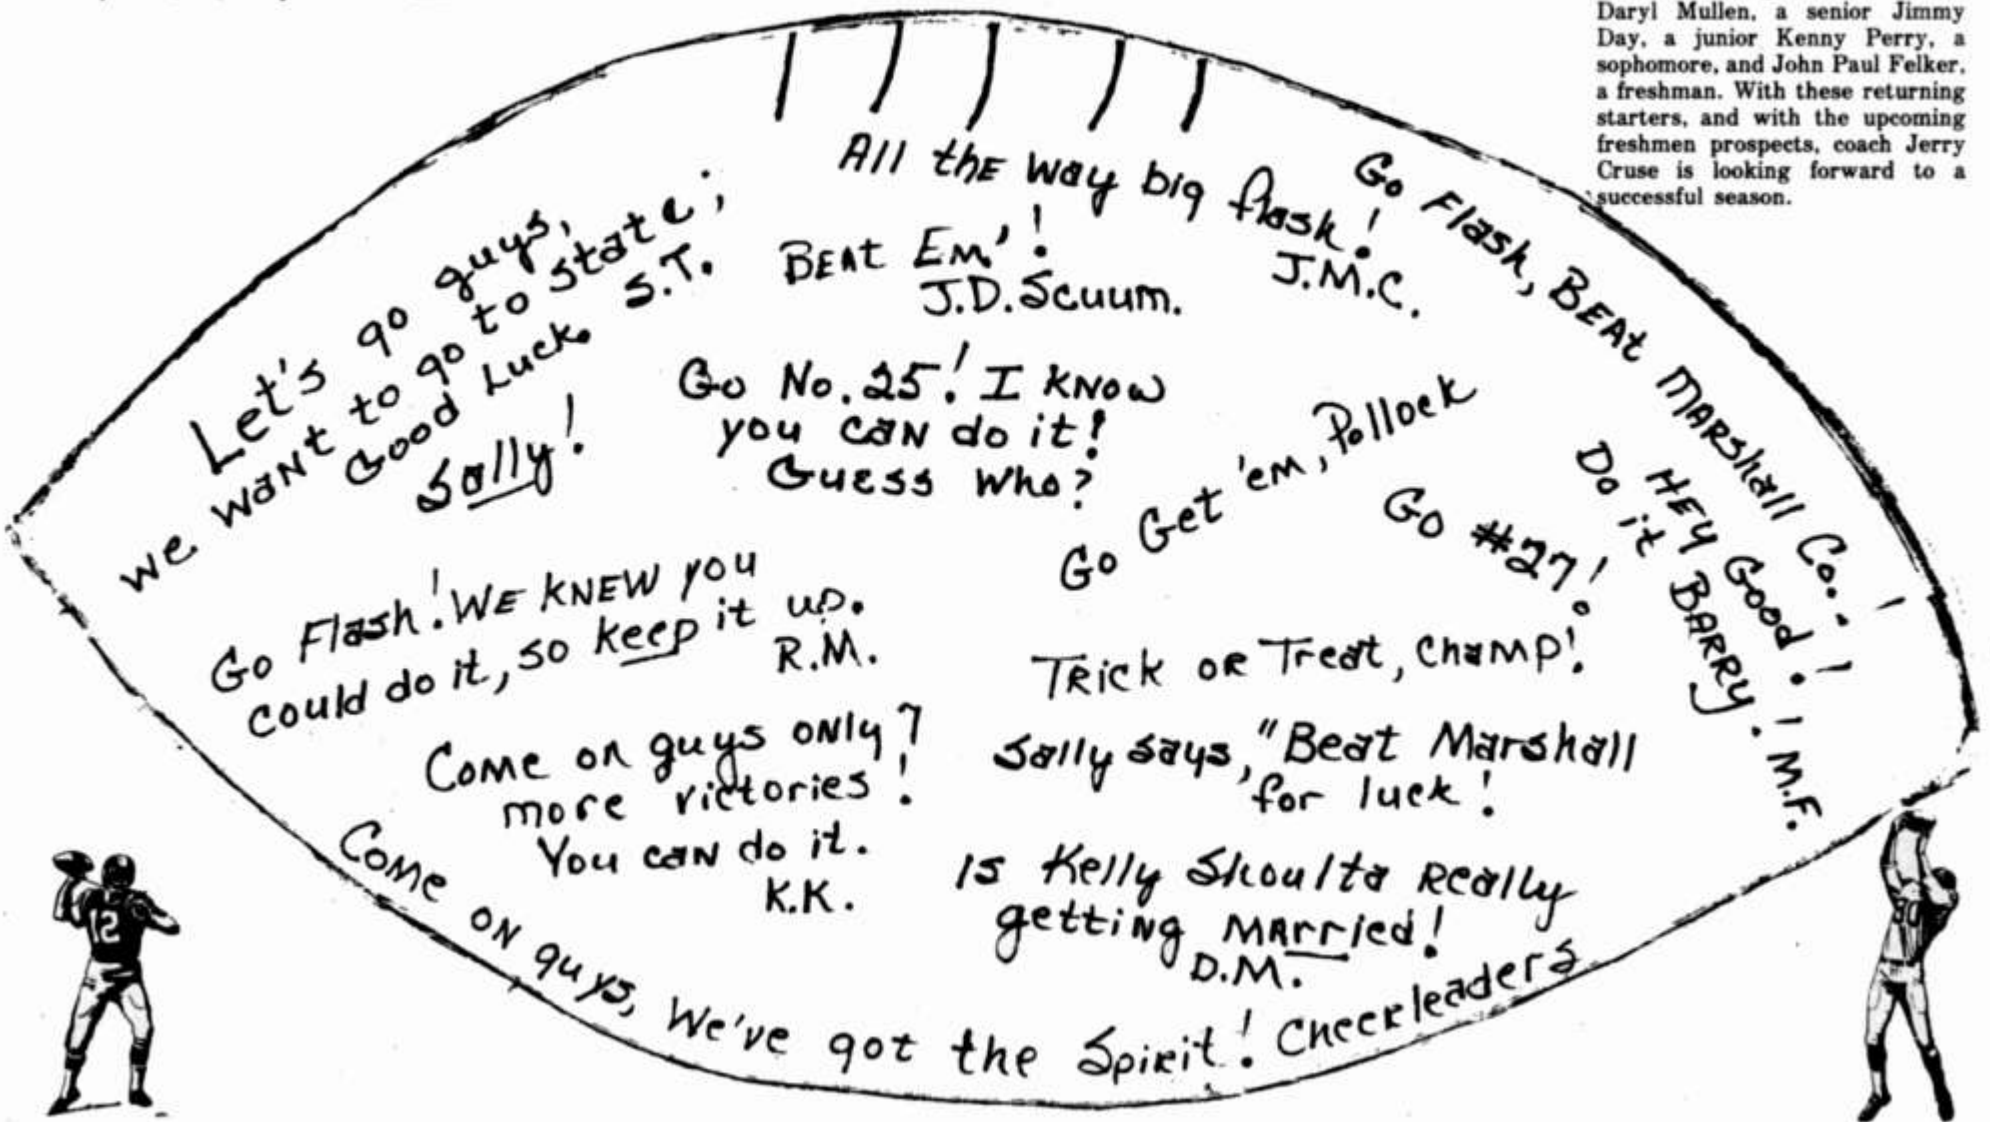 Daryl Mullen, a senior Jimmy
Day, a junior Kenny Perry, a
sophomore, and John Paul Felker,
a freshman. With these returning
starters, and with the upcoming
freshmen prospects, coach Jerry
Cruse is looking forward to a
successful season.
All the way big flash!
J.M.C.
Go Flash, Beat Marshall Co..!
Let's go guys,
we want to go to state;
Good Luck. S.T.
Sally!
Beat Em'!
J.D. Scuum.
Go No. 25! I know
you can do it!
Guess Who?
Go Get 'em, Pollock
Go #27!
Hey Good!
Do it Barry! M.F.
Go Flash! We knew you
could do it, so keep it up.
R.M.
Trick or Treat, Champ!
Come on guys only 7
more victories!
You can do it.
K.K.
Sally says, "Beat Marshall
for luck!
Is Kelly Shoulta Really
getting Married!
D.M.
Come on guys, We've got the Spirit! Cheerleaders
12
80